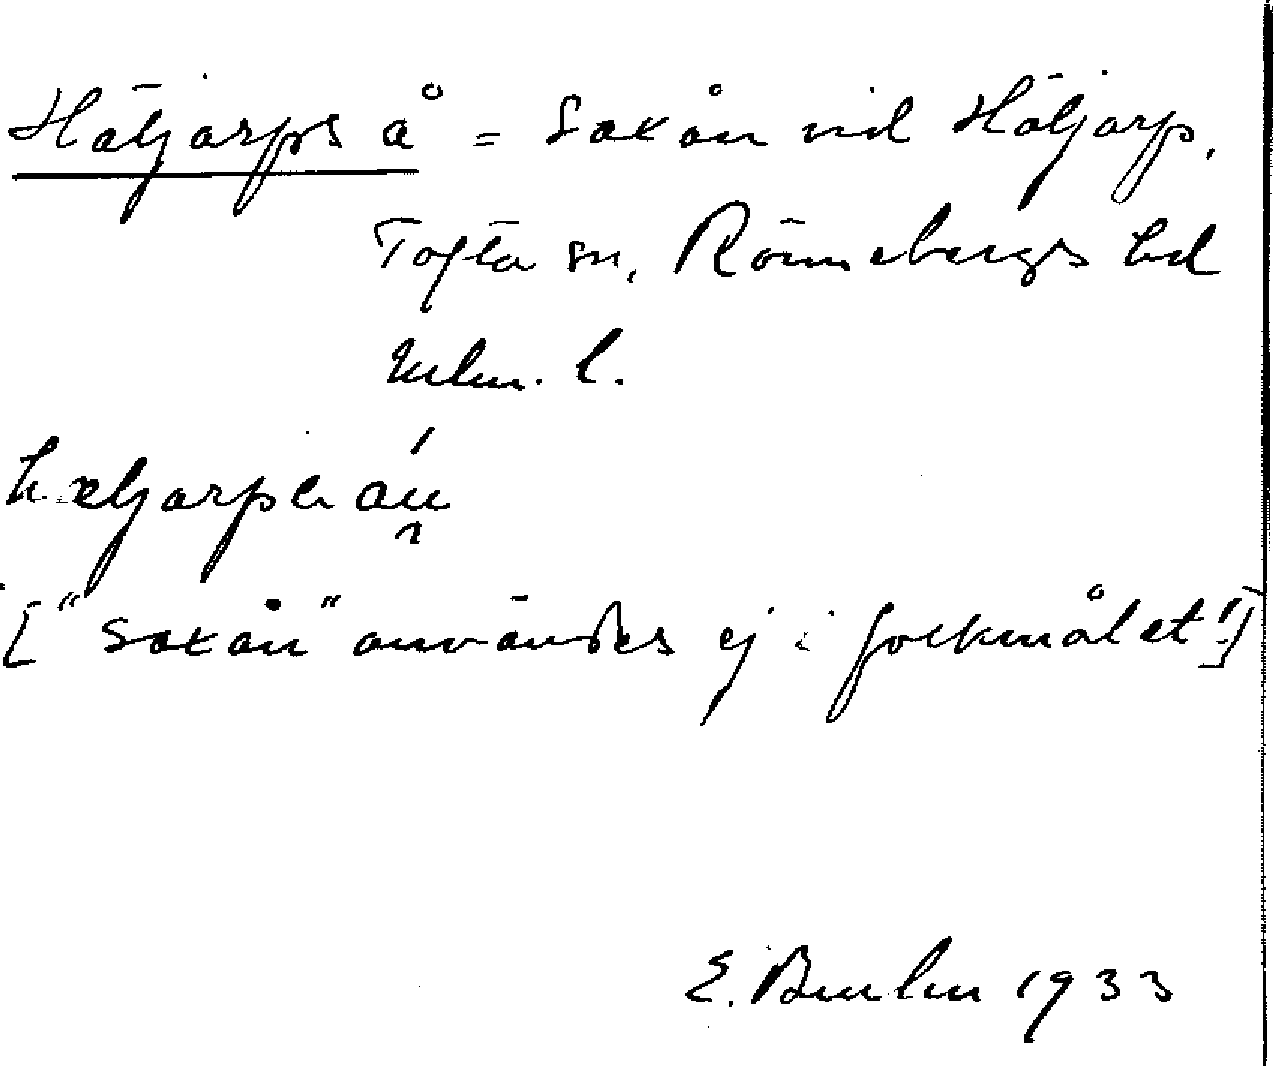 Häljarps å = Saxån vid Häljarp,
Tofta sn, Rönnebergs hd
Mlm. l.
hæljarps
["Saxån" användes ej i folkmålet!]
E. 1933